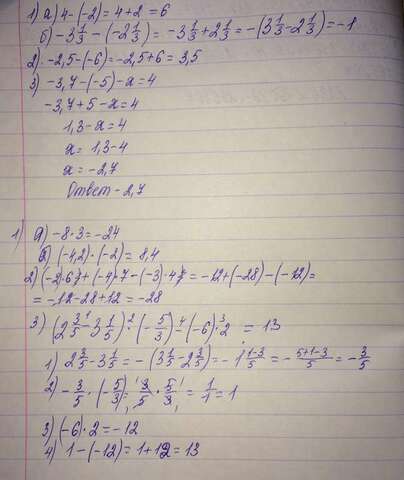 1) а) 4 - (-2) = 4 + 2 = 6
б) -3 1/3 - (-2 1/3) = -3 1/3 + 2 1/3 = -(3 1/3 - 2 1/3) = -1
2) -2,5 - (-6) = -2,5 + 6 = 3,5
3) -3,7 - (-5) - x = 4
-3,7 + 5 - x = 4
1,3 - x = 4
x = 1,3 - 4
x = -2,7
Ответ -2,7
1) а) -8 · 3 = -24
б) (-4,2) · (-2) = 8,4
2) (-2) · 6 + (-4) · 7 - (-3) · 4 = -12 + (-28) - (-12) =
= -12 - 28 + 12 = -28
3) (2 3/5 - 3 1/5) · (- 5/3) - (-6) · 2 = 13
1) 2 3/5 - 3 1/5 = -(3 1/5 - 2 3/5) = -1 1-3/5 = - 5+1-3/5 = - 3/5
2) - 3/5 · (- 5/3) = 3/5 · 5/3 = 1/1 = 1
3) (-6) · 2 = -12
4) 1 - (-12) = 1 + 12 = 13